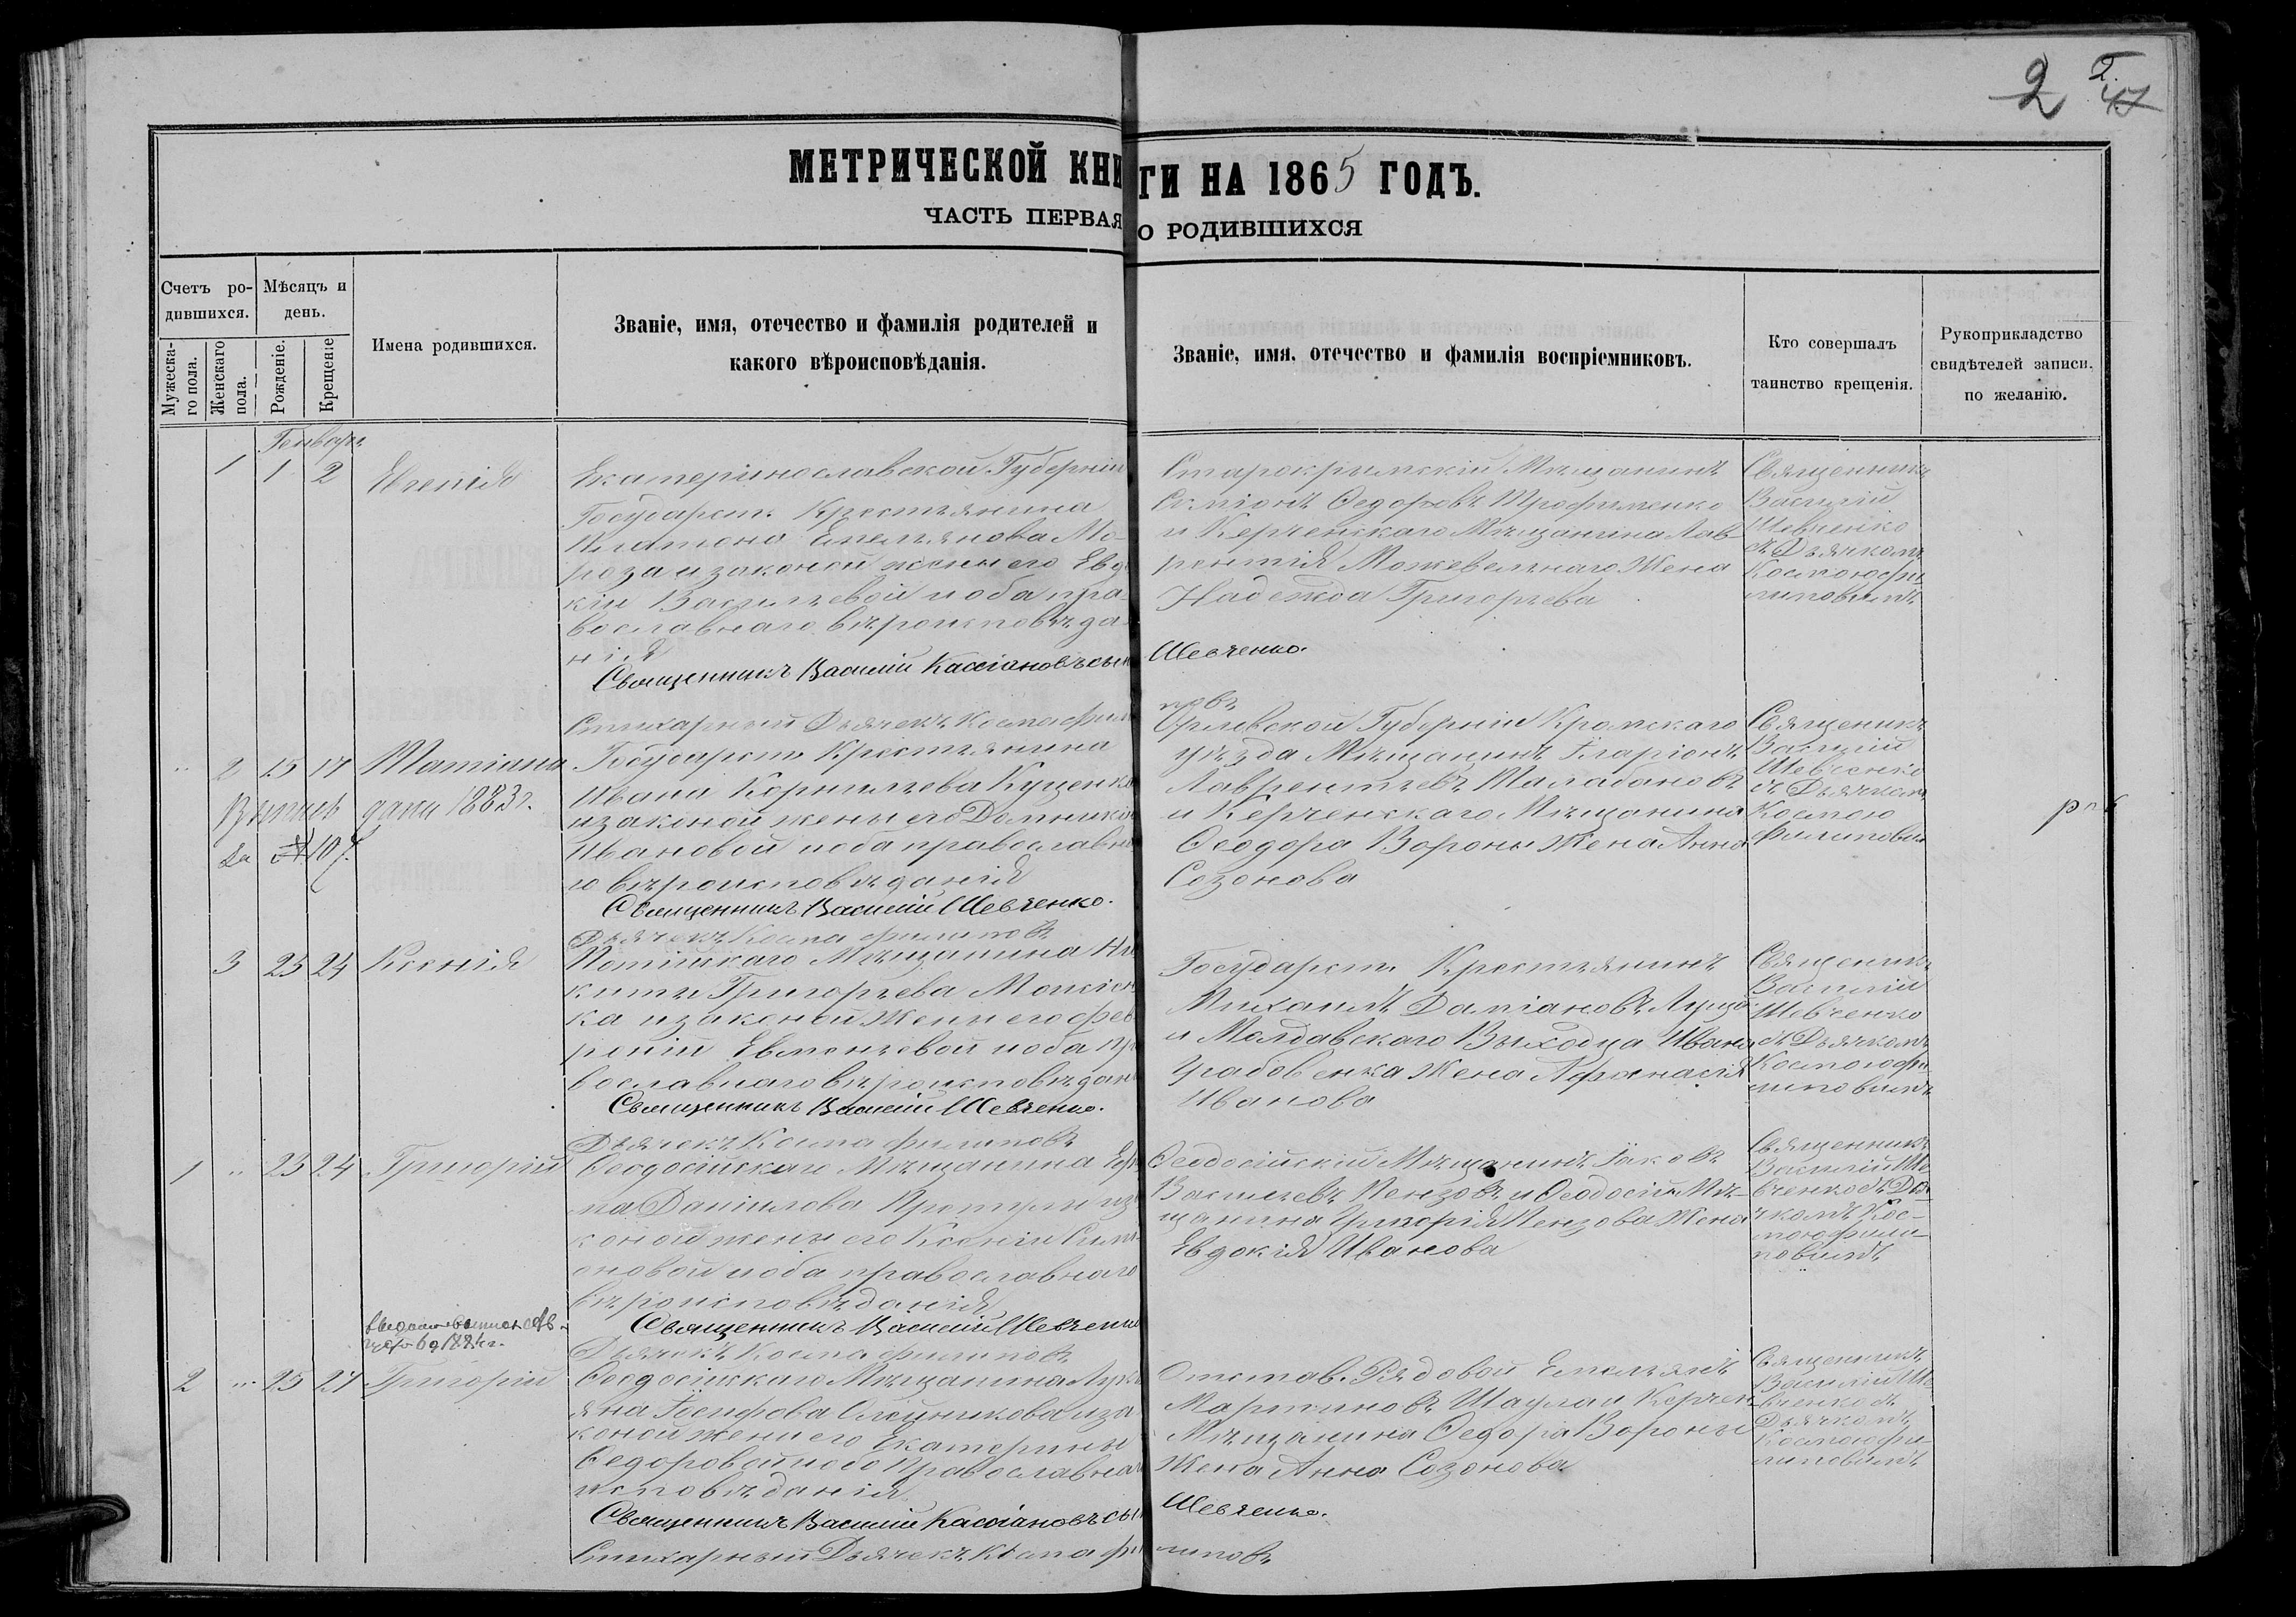 2 2.
47
МЕТРИЧЕСКОЙ КНИГИ НА 1865 ГОДЪ.
ЧАСТЬ ПЕРВАЯ О РОДИВШИХСЯ
Счетъ ро-
дившихся.
Мужеска-
го пола.
Женскаго
пола.
Мѣсяцъ и
день.
Рожденіе.
Крещеніе
Имена родившихся.
Званіе, имя, отечество и фамилія родителей и
какого вѣроисповѣданія.
Званіе, имя, отечество и фамилія воспріемниковъ.
Кто совершалъ
таинство крещенія.
Рукоприкладство
свидѣтелей записи,
по желанію.
Генварь
1 1 2 Евгенія
Екатеринославской Губерніи
Государств. Крестьянина
Платона Емельянова Мо-
роза и законой жены его Евдо
кіи Васильевой и оба пра-
вославнаго вѣроисповѣда-
нія
Священникъ Василій Кассіановъ сынъ Шевченко.
Стихарный Дьячекъ Косма Филиповъ
Старокрымскій Мѣщанинъ
Симіонъ Федоровъ Трофименко
и Керченскаго Мѣщанина Лав-
рентія Можевельнаго Жена
Надежда Григорьева
Священникъ
Василій
Шевченко
съ Дьячкомъ
Космою Фи-
липовымъ
2 15 17 Татіана
Выпись дана 1883 г.
за № 107.
Государств. Крестьянина
Ивана Корнильева Куценко
и законой жены его Домникіи
Ивановой и оба православна
го вѣроисповѣданія
Священникъ Василій Шевченко.
Дьячекъ Косма Филиповъ
Орловской Губерніи Кромскаго
уѣзда Мѣщанинъ Иларіонъ
Лаврентьевъ
и Керченскаго Мѣщанина
Феодора Вороны Жена Анна
Созонова
Священикъ
Василій
Шевченко
съ Дьячкомъ
Космою
Филиповым
3 23 24 Ксенія
Потійскаго Мѣщанина Ни
киты Григорьева Моисіен
ка и законой Жены его Фев
роніи Евменьевой и оба пра
вославнаго вѣроисповѣдан
Священникъ Василій Шевченко.
Дьячекъ Косма Филиповъ
Государств. Крестьянинъ
Михаилъ Даміановъ
и Молдавскаго Выходца Ивана
Градовенка Жена Афанасія
Иванова
Священикъ
Василій
Шевченко
съ Дьячкомъ
Космою Фи-
липовымъ
1 23 24 Григорій
Феодосійскаго Мѣщанина Ефи
ма Даніилова
коной жены его Ксеніи Сим
оновой и оба православнаго
вѣроисповѣданія
Священникъ Василій Шевченко
Дьячекъ Косма Филиповъ
Феодосійскій Мѣщанинъ Іаковъ
Васильевъ Пензовъ и Феодосійс. Мѣ-
щанина Григорія Пензова Жена
Евдокія Иванова
Священникъ
Василій Ше
вченко съ Дья
чкомъ Кос-
мою Фили-
повымъ
2 25 27 Григорій
Феодосійскаго Мѣщанина Лукь
яна Іосифова Олейникова и за
коной жены его Екатерины
Федоровой и обо Православнаго
исповѣданія
Священникъ Василій Кассіановъ сынъ Шевченко.
Стихарный Дьячекъ Косма Филиповъ
Отстав. Рядовой Емельянъ
Мартиновъ и Керчен
Мѣщанина Федора Вороны
Жена Анна Созонова
Священникъ
Василій Ше
вченко съ
Дьячкомъ
Космою Фи-
липовымъ